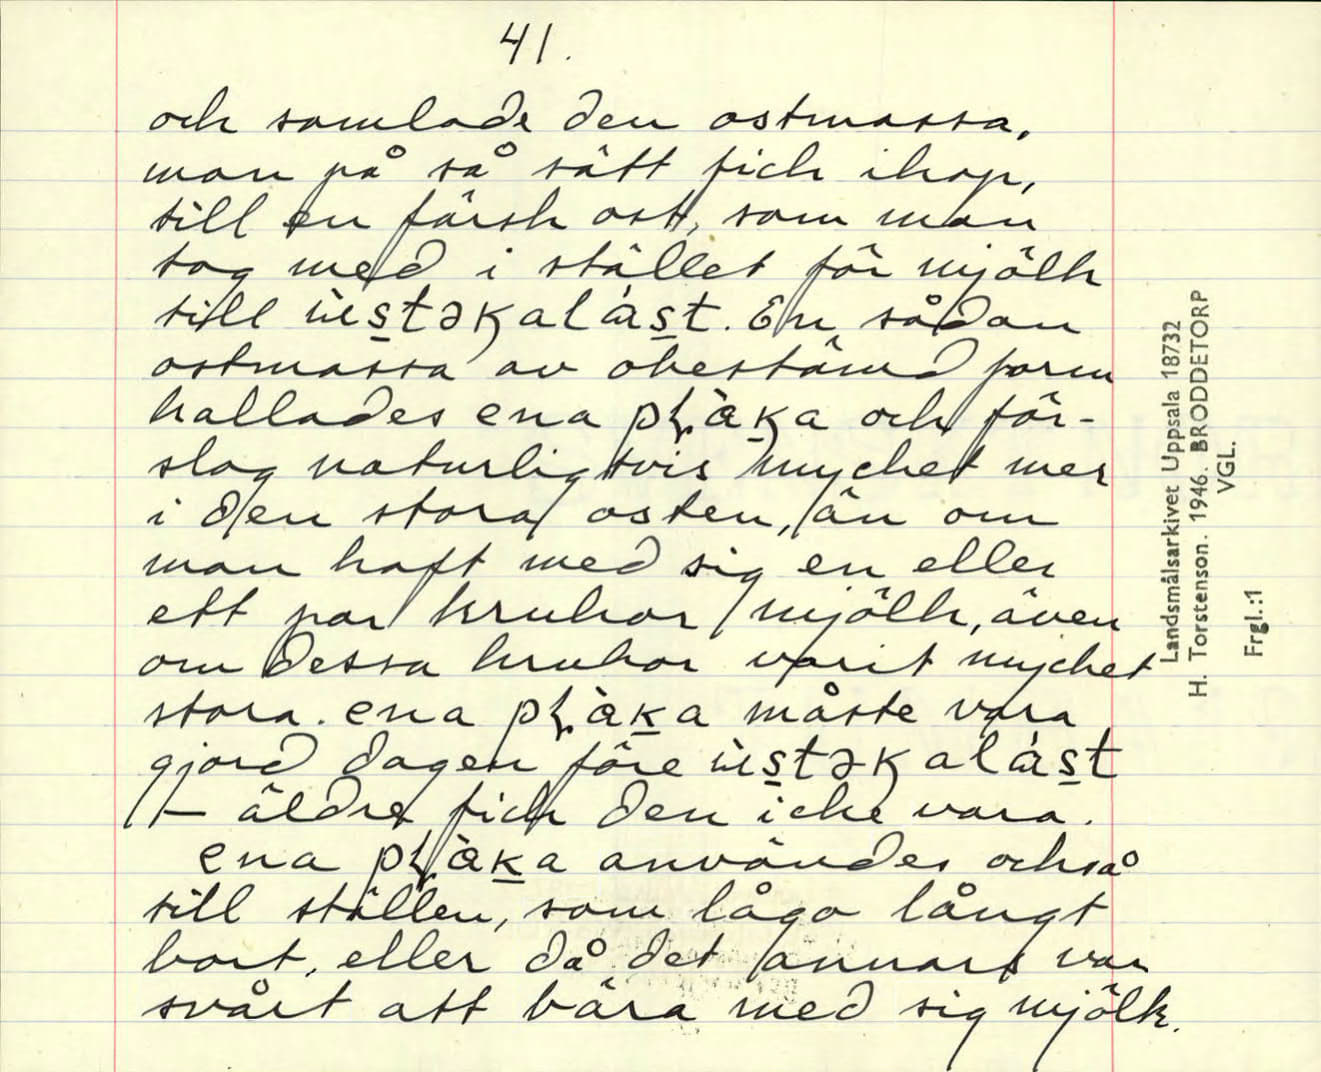 41.
och samlade den ostmassa,
man på så sätt fick ihop,
till en färsk ost, som man
tog med i stället för mjölk
till ùstəkalást. En sådan
ostmassa av obestämd form
kallades ena plàka och för-
slog naturligtvis mycket mer
i den stora osten, än om
man haft med sig en eller
ett par krukor mjölk, även
om dessa krukor varit mycket
stora. ena plàka måste vara
gjord dagen före ùstəkalást
– äldre fick den icke vara.
ena plàka användes också
till ställen, som lågo långt
bort, eller då det annars var
svårt att bära med sig mjölk.
Landsmålsarkivet Uppsala 18732
H. Torstenson. 1946. BRODDETORP
VGL.
Frgl.:1